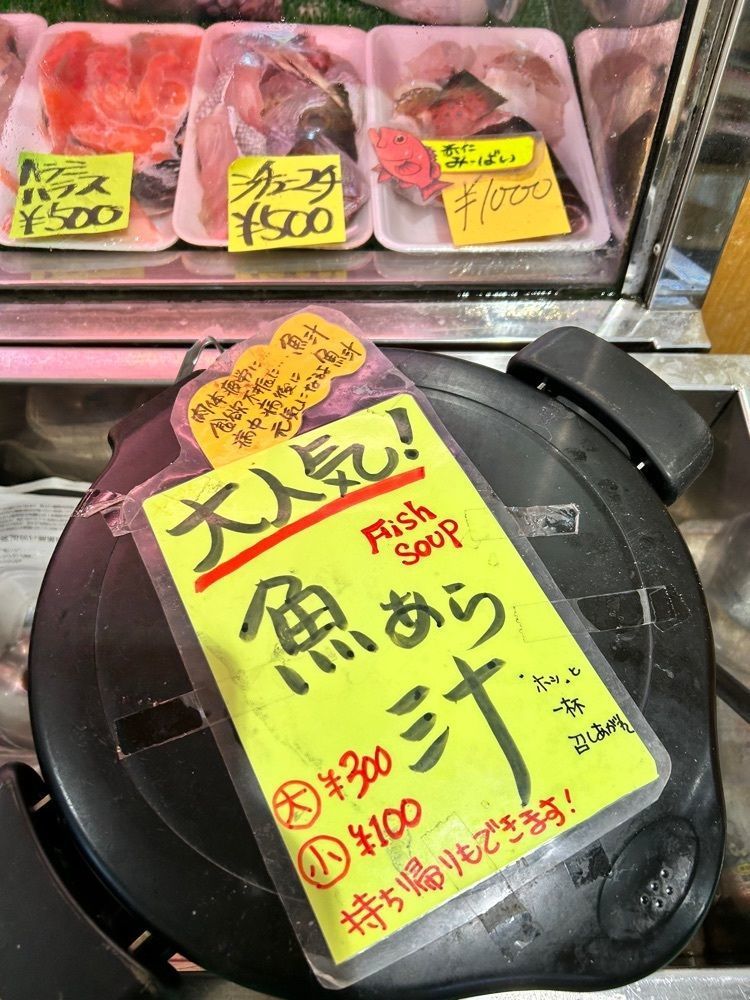 ハラス
¥500
¥500
みーばい
¥1000
魚汁
肉体疲労に
食欲不振に…
病中病後に
元気になるよ魚汁
大人気!
Fish
Soup
魚あら
汁
ホッと
一杯
召しあがれ
大 ¥300
小 ¥100
持ち帰りもできます!